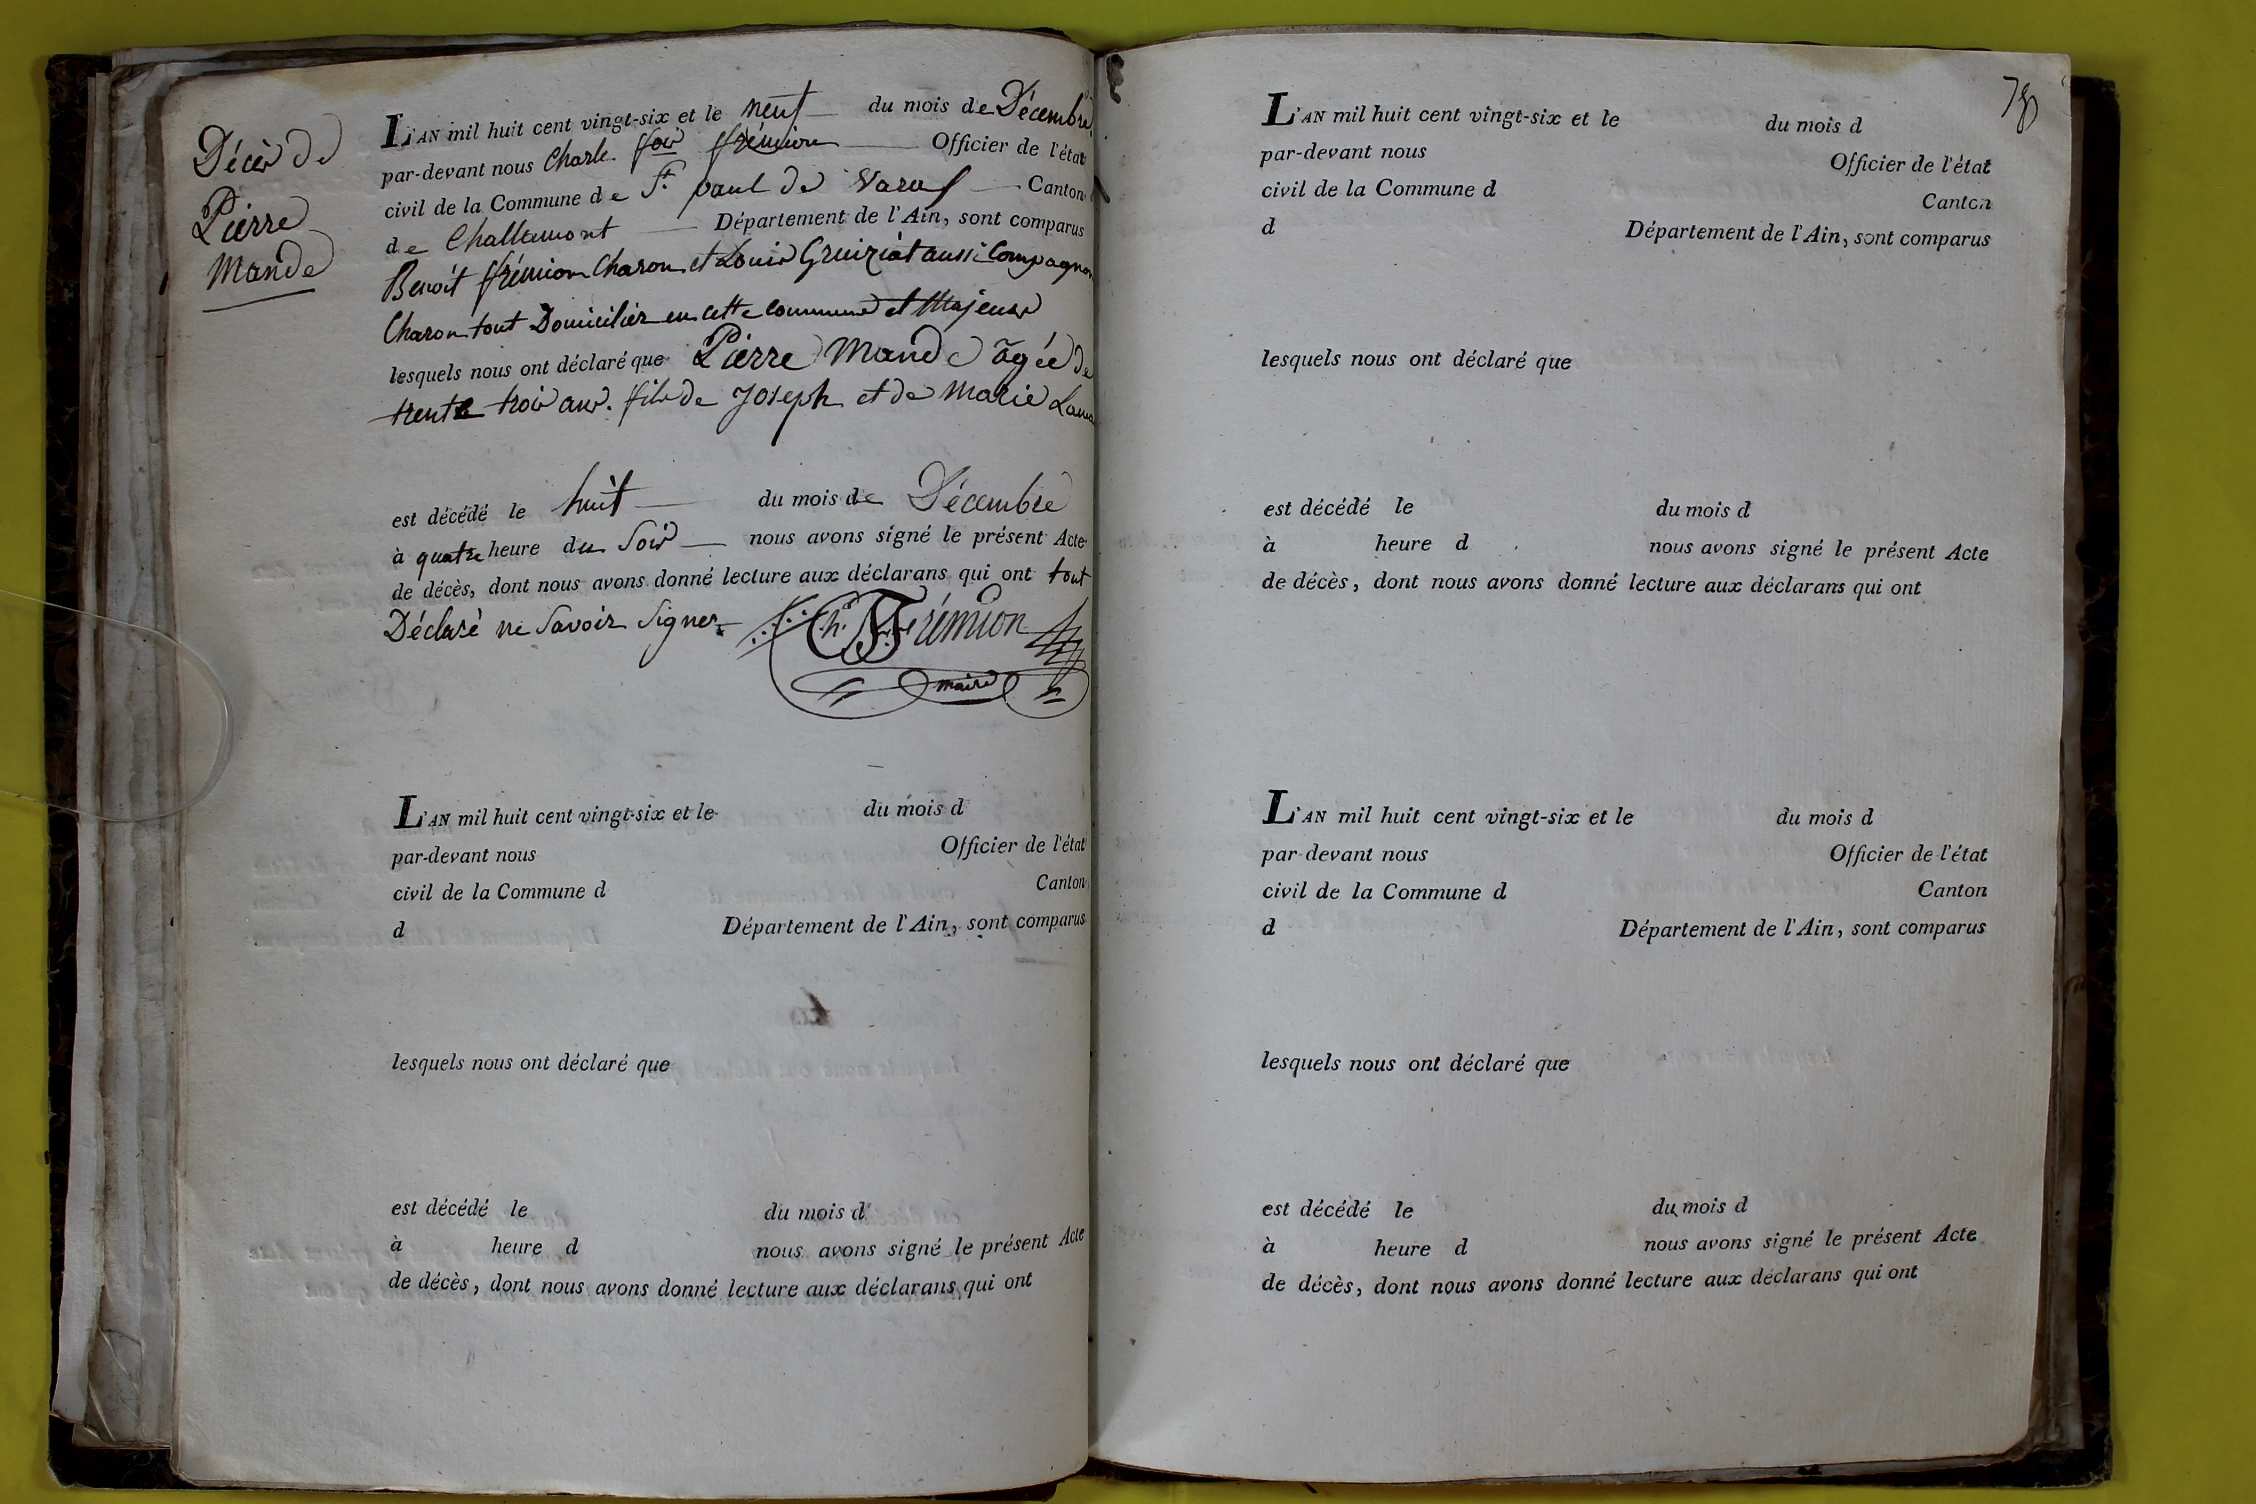 Décès de
Pierre
Mande
L'AN mil huit cent vingt-six et le neuf du mois de Décembre
par-devant nous Charle frémion Officier de l'état
civil de la Commune de St. paul de Varax Canton
de Challamont Département de l'Ain, sont comparus
Benoît frémion Charon et Louis Gruiziat aussi Compagnon
Charon tout Domicilier en cette commune et Majeur
lesquels nous ont déclaré que Pierre Mande âgée de
trente trois ans. fils de Joseph et de Marie
est décédé le huit du mois de Décembre
à quatre heure du Soir nous avons signé le présent Acte
de décès, dont nous avons donné lecture aux déclarans qui ont tout
Déclaré ne Savoir Signer Ch. Frémion
maire
L'AN mil huit cent vingt-six et le du mois d
par-devant nous Officier de l'état
civil de la Commune d Canton
d Département de l'Ain, sont comparus
lesquels nous ont déclaré que
est décédé le du mois d
à heure d nous avons signé le présent Acte
de décès, dont nous avons donné lecture aux déclarans qui ont
L'AN mil huit cent vingt-six et le du mois d
par-devant nous Officier de l'état
civil de la Commune d Canton
d Département de l'Ain, sont comparus
lesquels nous ont déclaré que
est décédé le du mois d
à heure d nous avons signé le présent Acte
de décès, dont nous avons donné lecture aux déclarans qui ont
L'AN mil huit cent vingt-six et le du mois d
par devant nous Officier de l'état
civil de la Commune d Canton
d Département de l'Ain, sont comparus
lesquels nous ont déclaré que
est décédé le du mois d
à heure d nous avons signé le présent Acte
de décès, dont nous avons donné lecture aux déclarans qui ont